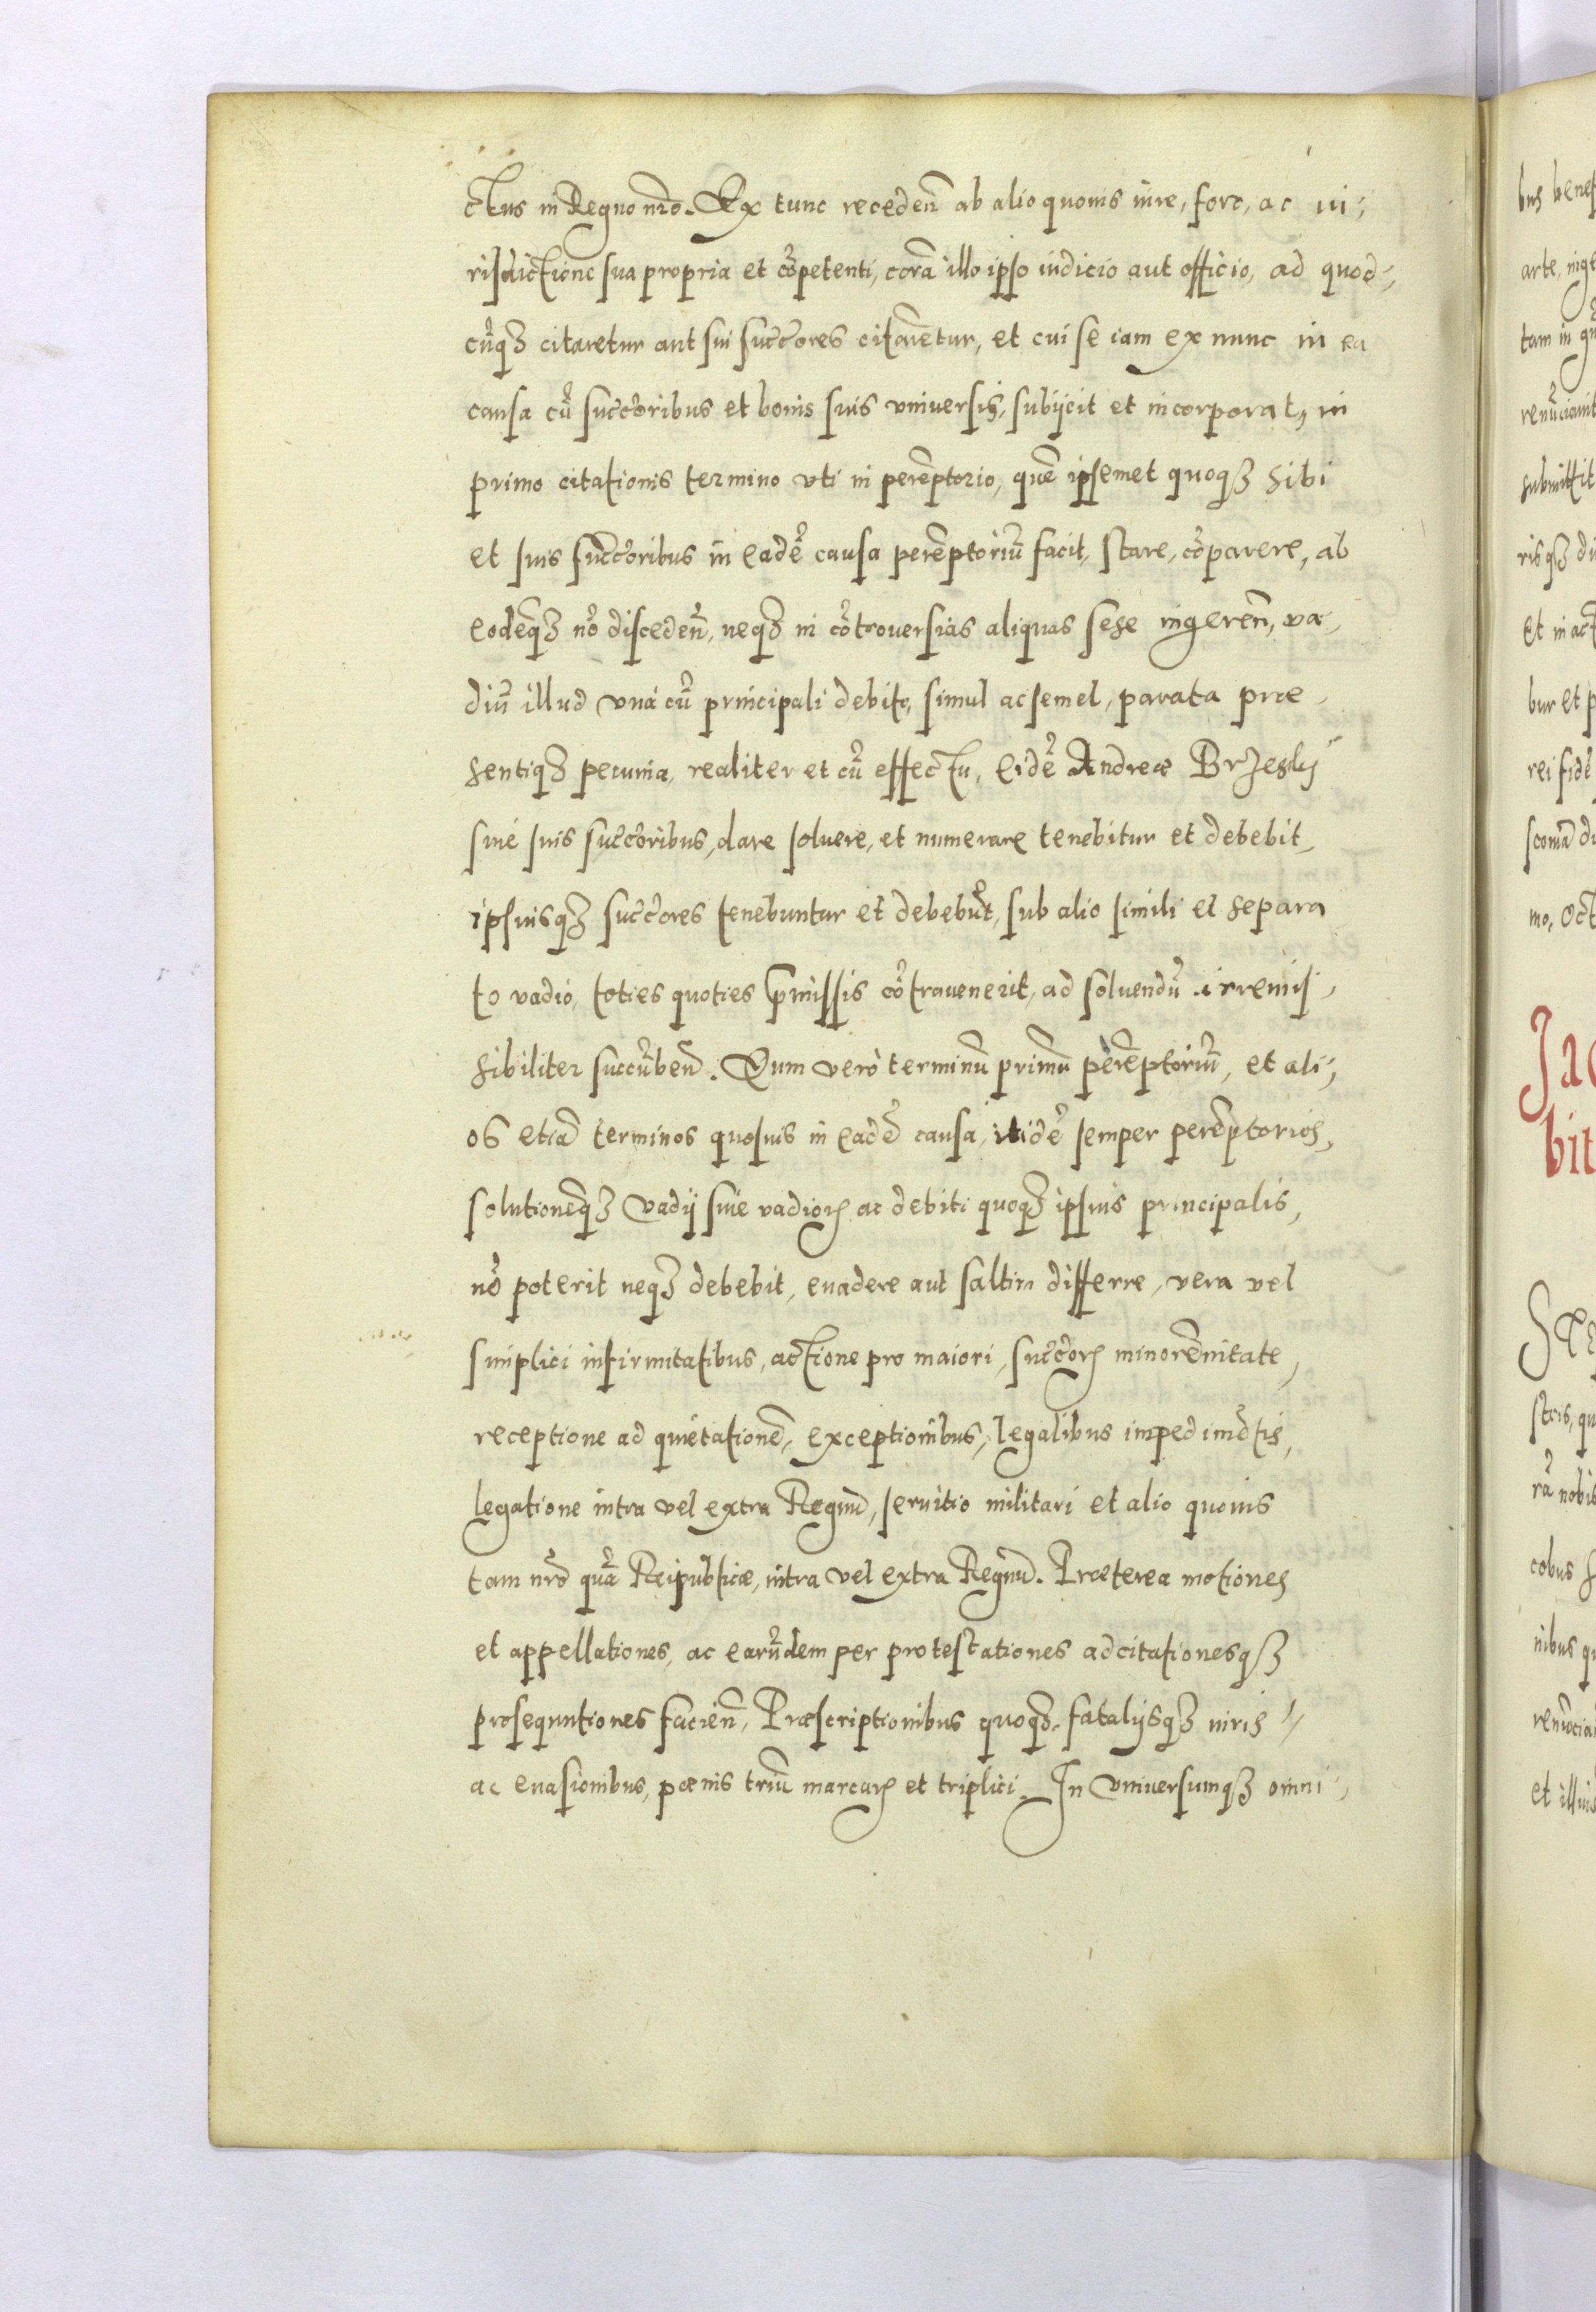 ctus in Regno nr̃o. Ex tunc receden̄ ab alio quouis iure, foro, ac iu-
risdictione sua propria et cōpetenti, corā illo ipso iudicio aut officio, ad quod-
cūq3 citaretur aut sui succ̄ores citarētur, et cui se iam ex nunc in ea
causa cū succ̄oribus et bonis suis vniuersis, subijcit et incorporat, in
primo citationis termino vti in perēptorio, quē ipsemet quoq3 sibi
et suis succ̄oribus in eadē causa perēptoriū facit, stare, cōparere, ab
eodēq3 nō disceden̄, neq3 in cōtrouersias aliquas sese ingeren̄, va-
diū illud vná cū principali debito, simul ac semel, parata præ-
sentiq3 pecunia, realiter et cū effectu, eidē Andreæ Brzeskij
siué suis succ̄oribus, dare soluere, et numerare tenebitur et debebit,
ipsiusq3 succ̄ores tenebuntur et debebūt, sub alio simili et separa
to vadio, toties quoties p̄missis cōtrauenerit, ad soluendū irremis-
sibiliter succūben̄. Quum verò terminū primū perēptoriū, et ali-
os etiā terminos quosuis in eadē causa, itidē semper perēptorios,
solutionēq3 vadij siue vadioꝝ ac debiti quoq3 ipsius principalis,
nō poterit neq3 debebit, euadere aut saltim differre, vera vel
simplici infirmitatibus, actione pro maiori, succ̄oꝝ minorēnitate,
receptione ad quietationē, exceptionibus, legalibus impedimētis,
legatione intra vel extra Regnū, seruitio militari et alio quouis
tam nr̃o quā Reipublicæ, intra vel extra Regnū. Præterea motiones
et appellationes, ac earūdem per protestationes adcitationesq3
prosequutiones facien̄, Præscriptionibus quoq3, fatalijsq3 iuris
ac euasionibus, pœnis triū marcaꝝ et triplici. In vniuersumq3 omni-